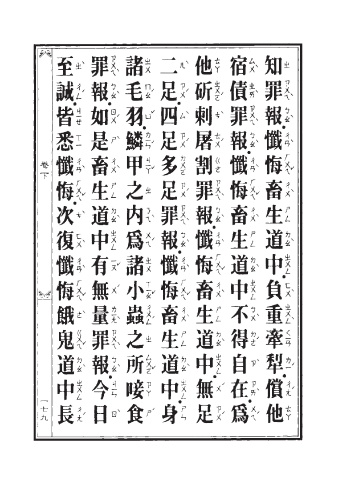 知罪報。懺悔畜生道中。負重牽犁償他
宿債罪報。懺悔畜生道中不得自在。為
他斫刺屠割罪報。懺悔畜生道中。無足
二足。四足多足罪報。懺悔畜生道中。身
諸毛羽。鱗甲之內。為諸小蟲之所唼食
罪報。如是畜生道中有無量罪報。今日
至誠。皆悉懺悔。次復懺悔餓鬼道中長
卷下
一七九